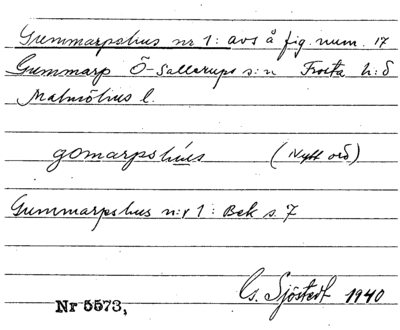 Gummarpshus nr 1: avs å fig. num. 17
Gummarp Ö-Sallerups s:n Frosta h:d
Malmöhus l.
gomarpshús (Nytt ord)
Gummarpshus n:r 1: Bek s. 7
G. Sjöstedt 1940
Nr 5573,